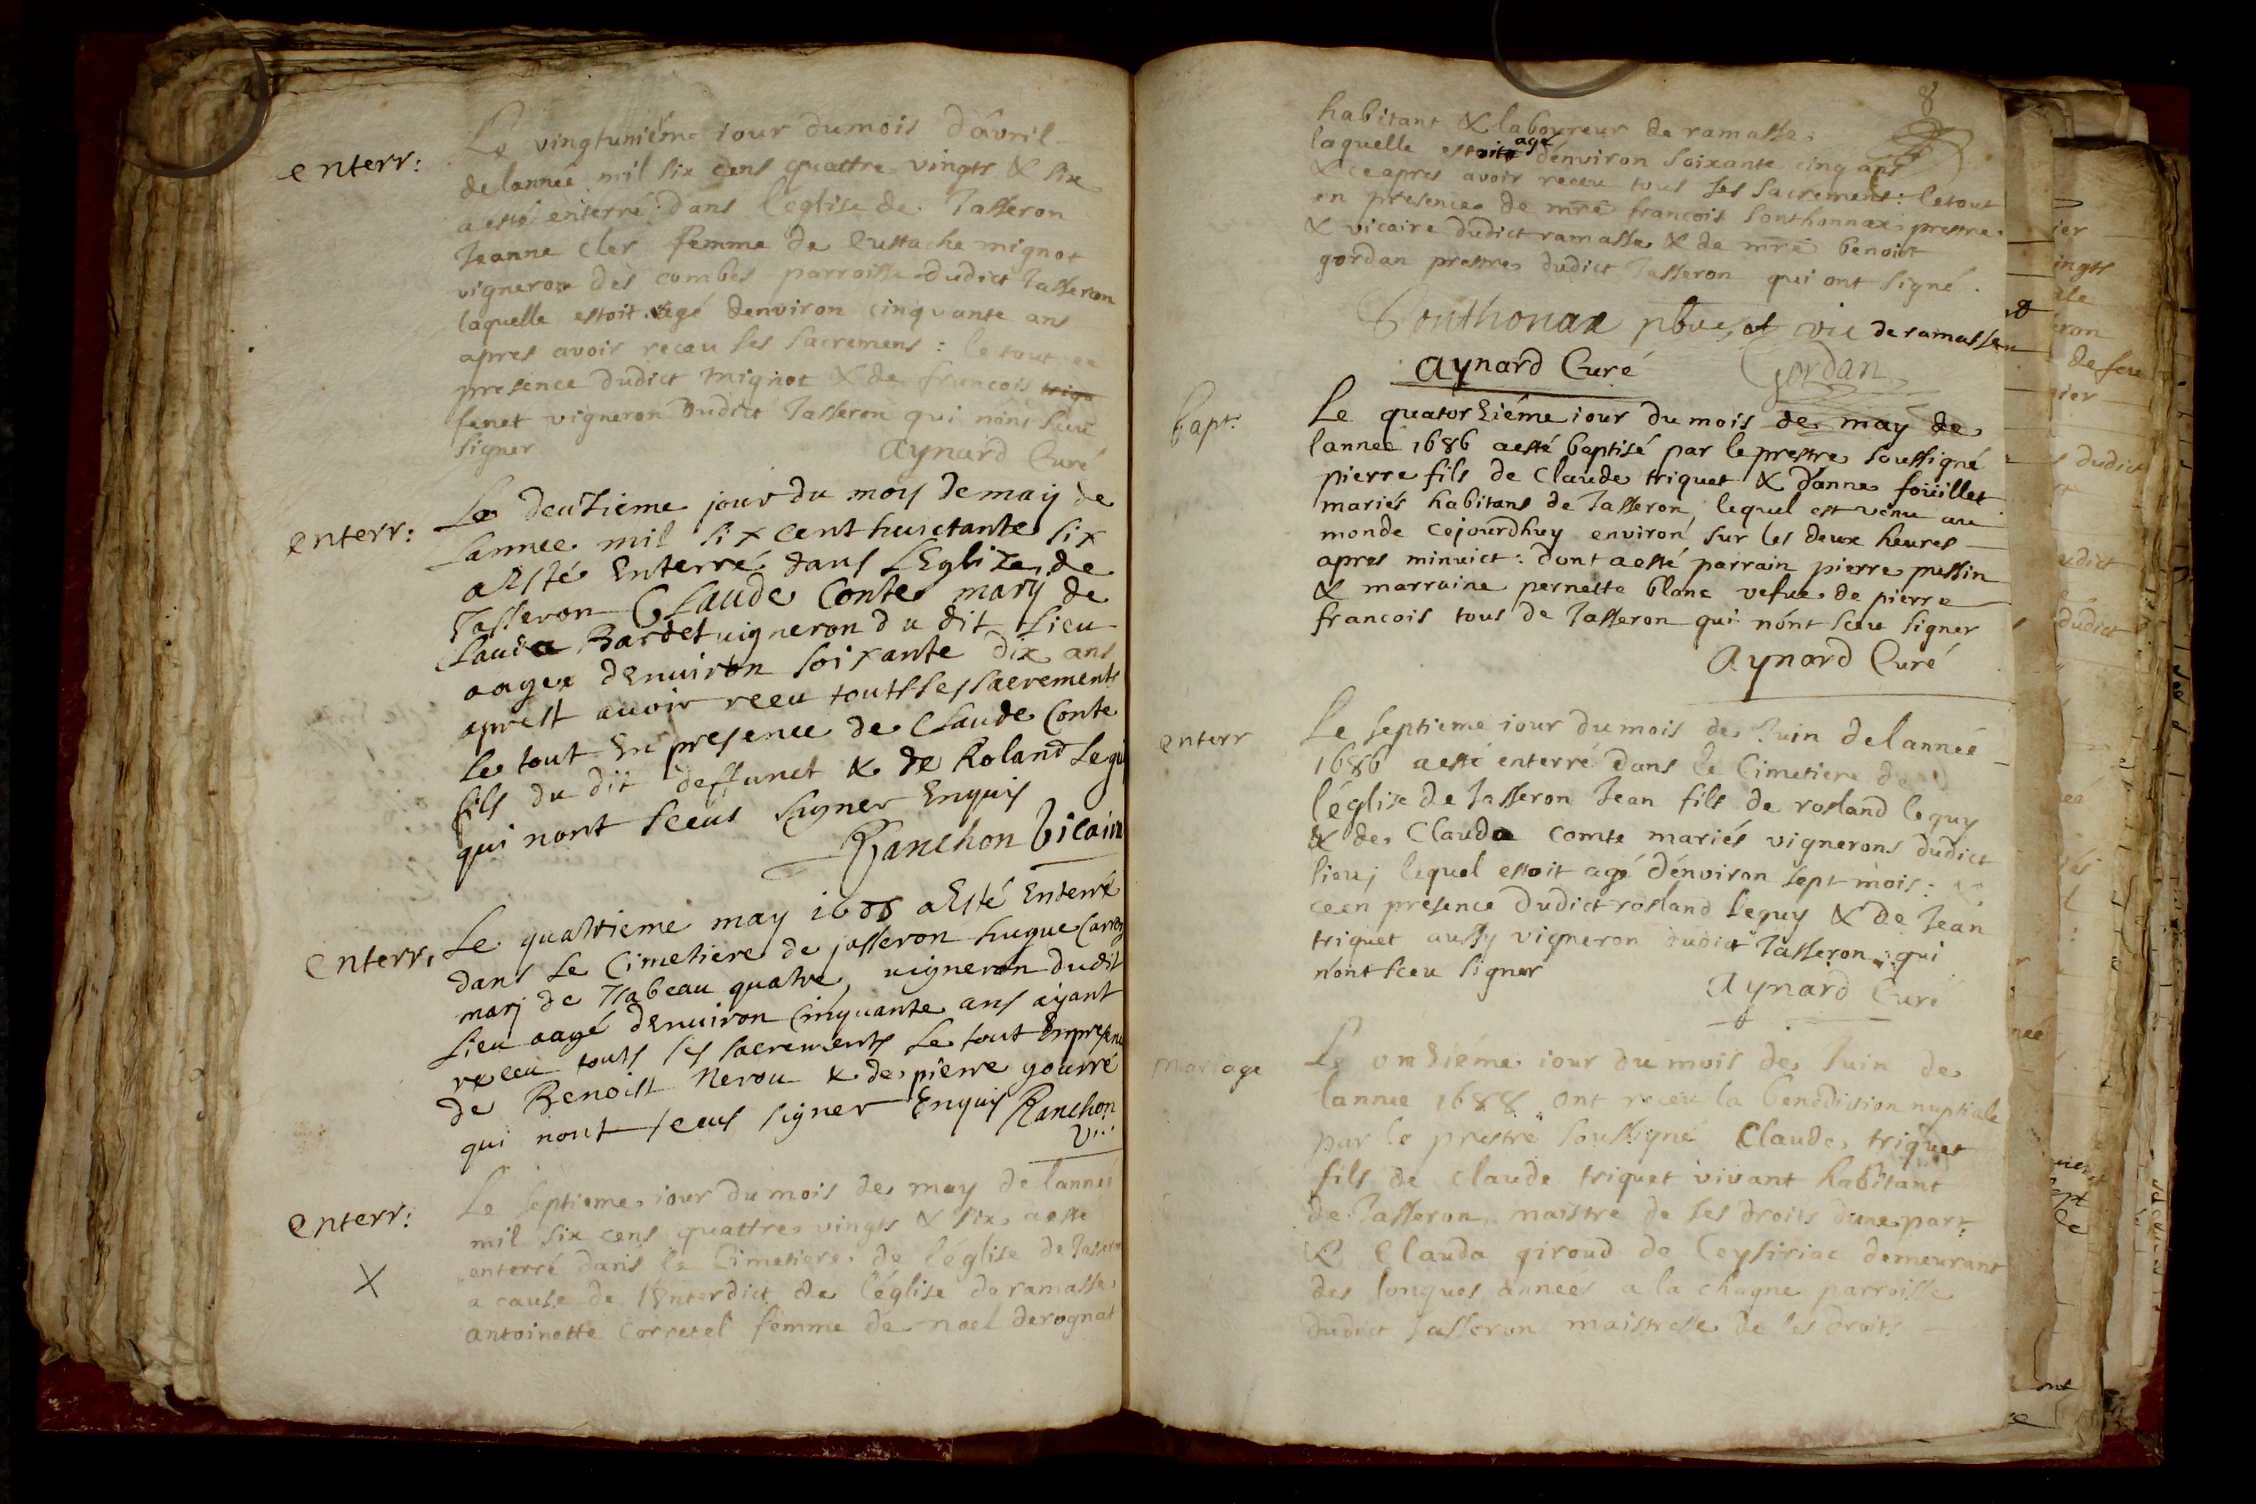 enterr:
Le vingtuniéme iour dumois dávril
delanneé mil six cens quattre vingts & six
aesté enterré dans léglise de Iasseron
Ieanne Cler femme de Eustache mignot
vigneron des combes parroisse dudict Iasseron
laquelle estoit agé denviron cinquante ans
apres avoir receu ses sacremens : letout en
presence dudict mignot & de francois
fenet vigneron dudict Iasseron qui nónt sceu
signer
aynard Curé
enterr:
Le deuzieme jour du moy de maij de
Lannee mil six cent huictante six
a Esté Enterré dans LEglize de
Jasseron Claude Conte mary de
Clauda Bardet uigneron du dit Lieu
aagez denuiron soixante dix ans
aprest auoir receu touts ses sacrements
Le tout En presence de Claude Conte
fils du dit deffunct & de Roland Legui
qui nont sceus signer Enquis
Ranchon Vicair
enterr,
Le quatrieme may 1686 a Esté Enterré
dans Le Cimetiere de jasseron hugue
marj de Isabeau quatre, uigneron dudit
Lieu aagé denuiron Cinquante ans ayant
receu touts ses sacrements Le tout Enpresence
de Benoist Nerou & de pierre gourré
qui nont sceus signer Enquis Ranchon
V...
enterr:
X
Le septieme iour dumois de may de lanneé
mil six cens quattre vingts & six aesté
enterré dans le Cimetiere de léglise de Iasseron
a cause de lEnterdict de léglise de ramasse
antoinette Corretel femme de noel derognat
8
habitant & laboureur de ramasse
laquelle estoit agé dénviron soixante cinq ans
& ceapres avoir receu tous ses sacremens : letout
en presence de mre francois Southonnax prestre
& vicaire dudict ramasse & de mre benoist
gordan prestre dudict Iasseron qui ont signé.
Southonax pbre, et vic de ramasse
aynard Curé Gordan
bapt:
Le quatorziéme iour du mois de may de
lanneé 1686 aesté baptisé par leprestre soussigné
pierre fils de Claude triquet & dánne foüillet
mariés habitans de Iasseron lequel est venu au
monde cejourdhuy environ sur les deux heures
apres minuict : dont aesté parrain pierre pussin
& marraine pernette blanc vefue de pierre
francois tous de Iasseron qui nónt sceu signer
aynard Curé
enterr
Le septieme iour dumois de Iuin delanneé
1686 aesté enterré dans le Cimetiere de
léglise de Iasseron Iean fils de rosland lequy
& de Clauda comte mariés vignerons dudict
lieu, lequel estoit agé dénviron sept mois :
ceen presence dudict rosland lequy & de Iean
triquet aussy vigneron dudict Iasseron : qui
nónt sceu signer
aynard Curé
mariage
Le onziéme iour du mois de Iuin de
lannee 1688 ont receu la benediction nuptiale
par le prestre soussigné Claude triquet
fils de claude triquet vivant habitant
de Iasseron, maistre de ses droits dune part
& Clauda giroud de Ceysiriac demeurant
des longues années a la chagne parroisse
dudict Iasseron maistresse de ses droits